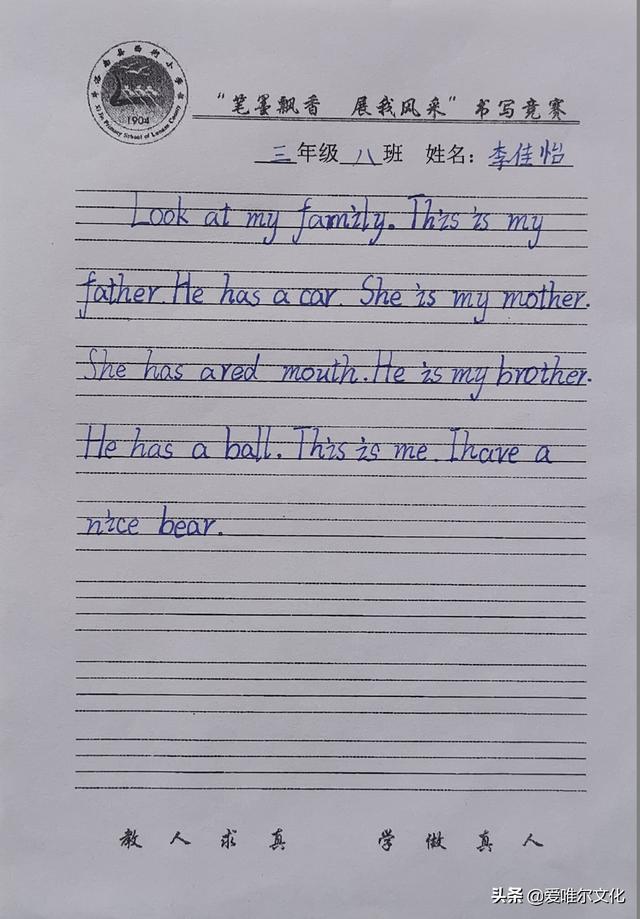 洛南县西街小学
Xi Jie Primary School of Luonan County
1904
“笔墨飘香 展我风采”书写竞赛
三年级八班 姓名：李佳怡
Look at my family. This is my
father. He has a car. She is my mother.
She has a red mouth. He is my brother.
He has a ball. This is me. I have a
nice bear.
教人求真 学做真人
头条 @爱唯尔文化